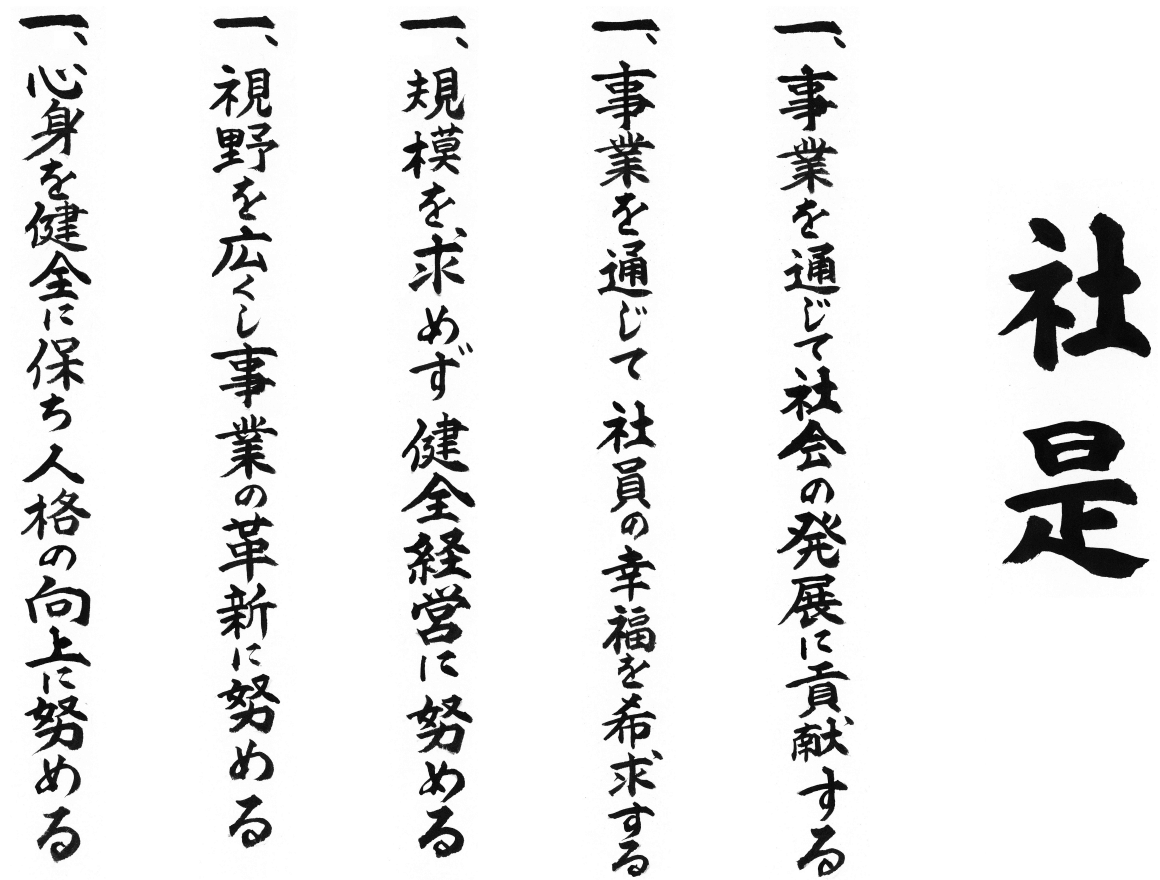 社是
一、事業を通じて社会の発展に貢献する
一、事業を通じて社員の幸福を希求する
一、規模を求めず健全経営に努める
一、視野を広くし事業の革新に努める
一、心身を健全に保ち人格の向上に努める